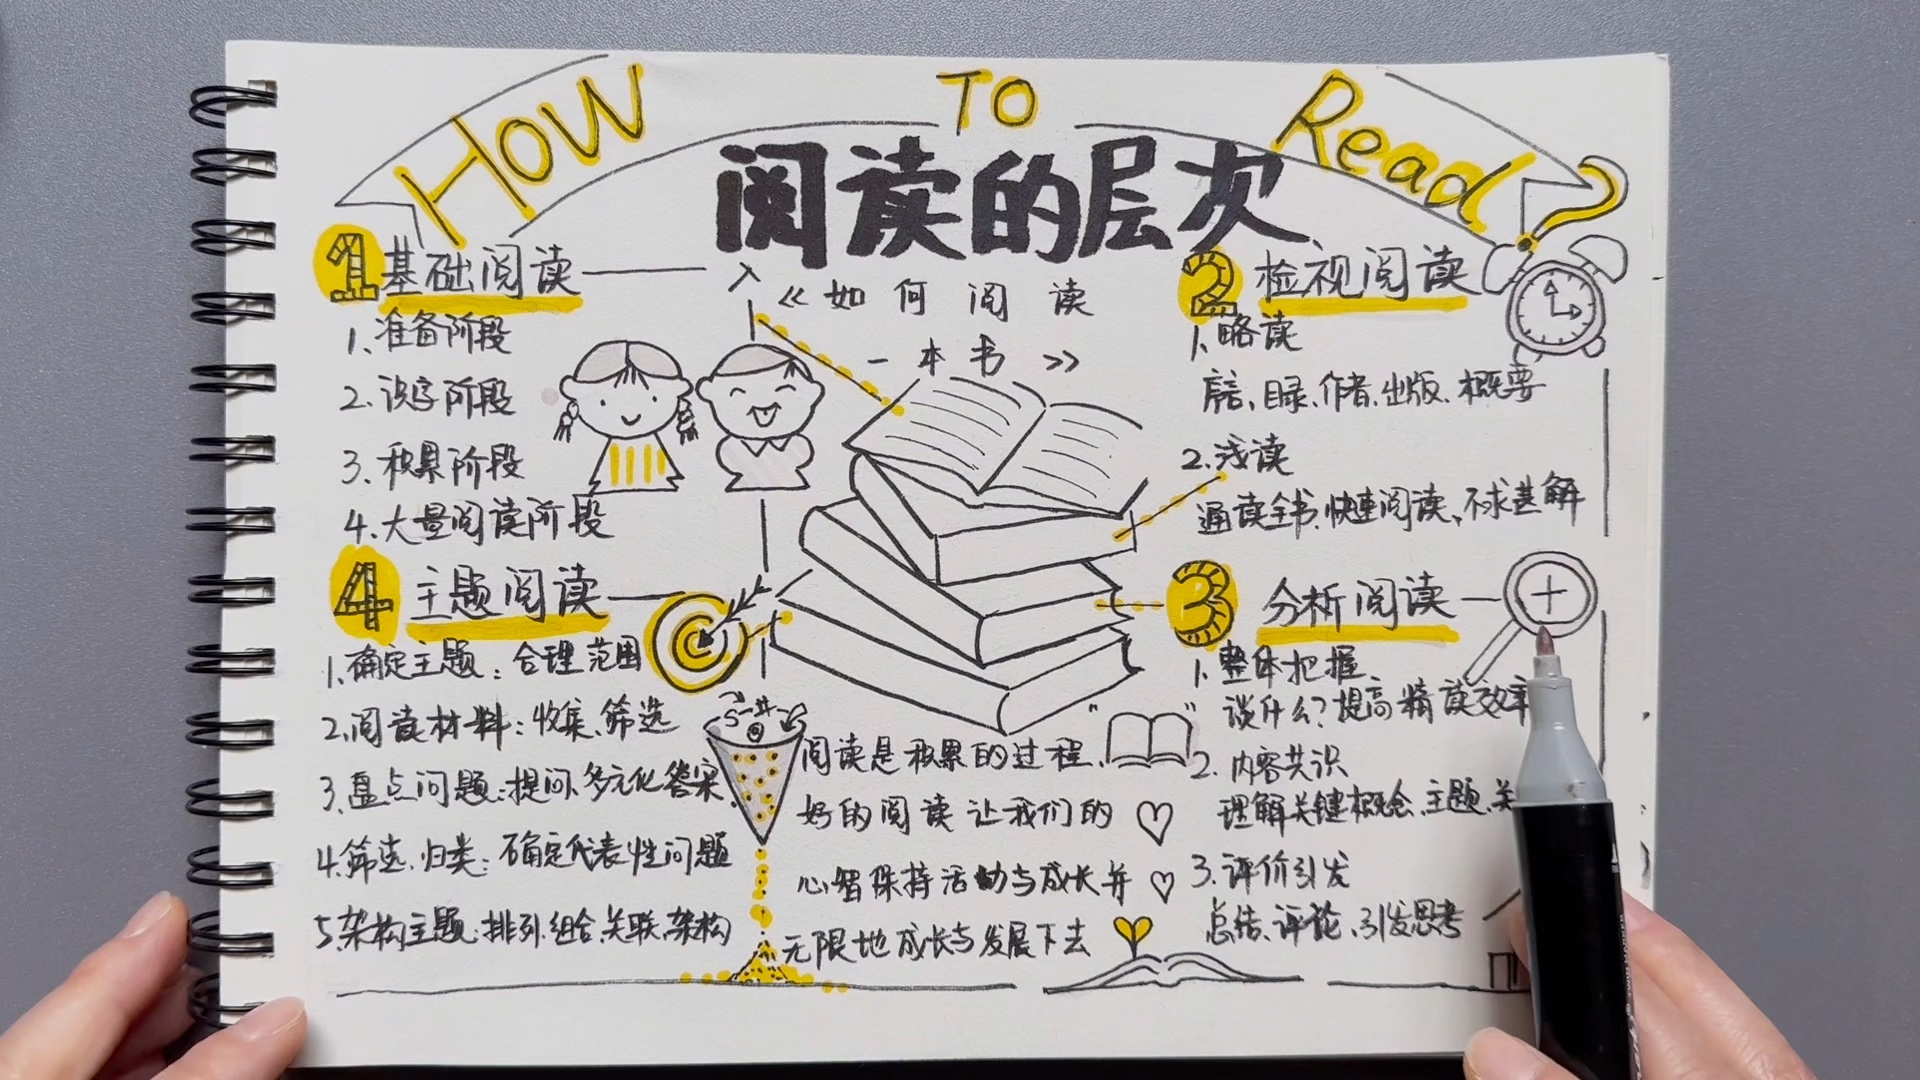 How To Read?
阅读的层次
《如何阅读
一本书》
1 基础阅读
1.准备阶段
2.识字阶段
3.积累阶段
4.大量阅读阶段
2 检视阅读
1.略读
序言、目录、作者、出版、概要
2.浅读
通读全书、快速阅读、不求甚解
3 分析阅读
1.整体把握
谈什么?提高精读效率
2.内容共识
理解关键概念、主题、关
3.评价引发
总结、评论、引发思考
4 主题阅读
1.确定主题:合理范围
2.阅读材料:收集、筛选
3.盘点问题:提问、多元化答案
4.筛选、归类:确定代表性问题
5.架构主题:排列、组合、关联、架构
阅读是积累的过程、
好的阅读让我们的
心智保持活动与成长并
无限地成长与发展下去